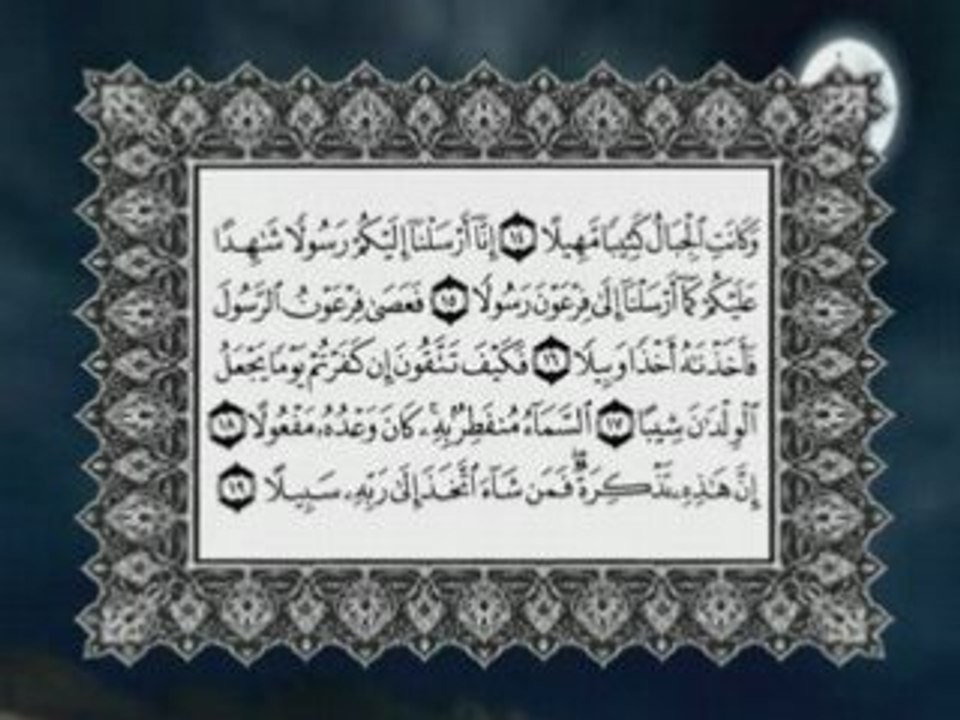 وَكَانَتِ ٱلْجِبَالُ كَثِيبًا مَّهِيلًا ١٤ إِنَّآ أَرْسَلْنَآ إِلَيْكُمْ رَسُولًا شَٰهِدًا
عَلَيْكُمْ كَمَآ أَرْسَلْنَآ إِلَىٰ فِرْعَوْنَ رَسُولًا ١٥ فَعَصَىٰ فِرْعَوْنُ ٱلرَّسُولَ
فَأَخَذْنَٰهُ أَخْذًا وَبِيلًا ١٦ فَكَيْفَ تَتَّقُونَ إِن كَفَرْتُمْ يَوْمًا يَجْعَلُ
ٱلْوِلْدَٰنَ شِيبًا ١٧ ٱلسَّمَآءُ مُنفَطِرٌۢ بِهِۦ ۚ كَانَ وَعْدُهُۥ مَفْعُولًا ١٨
إِنَّ هَٰذِهِۦ تَذْكِرَةٌ ۖ فَمَن شَآءَ ٱتَّخَذَ إِلَىٰ رَبِّهِۦ سَبِيلًا ١٩